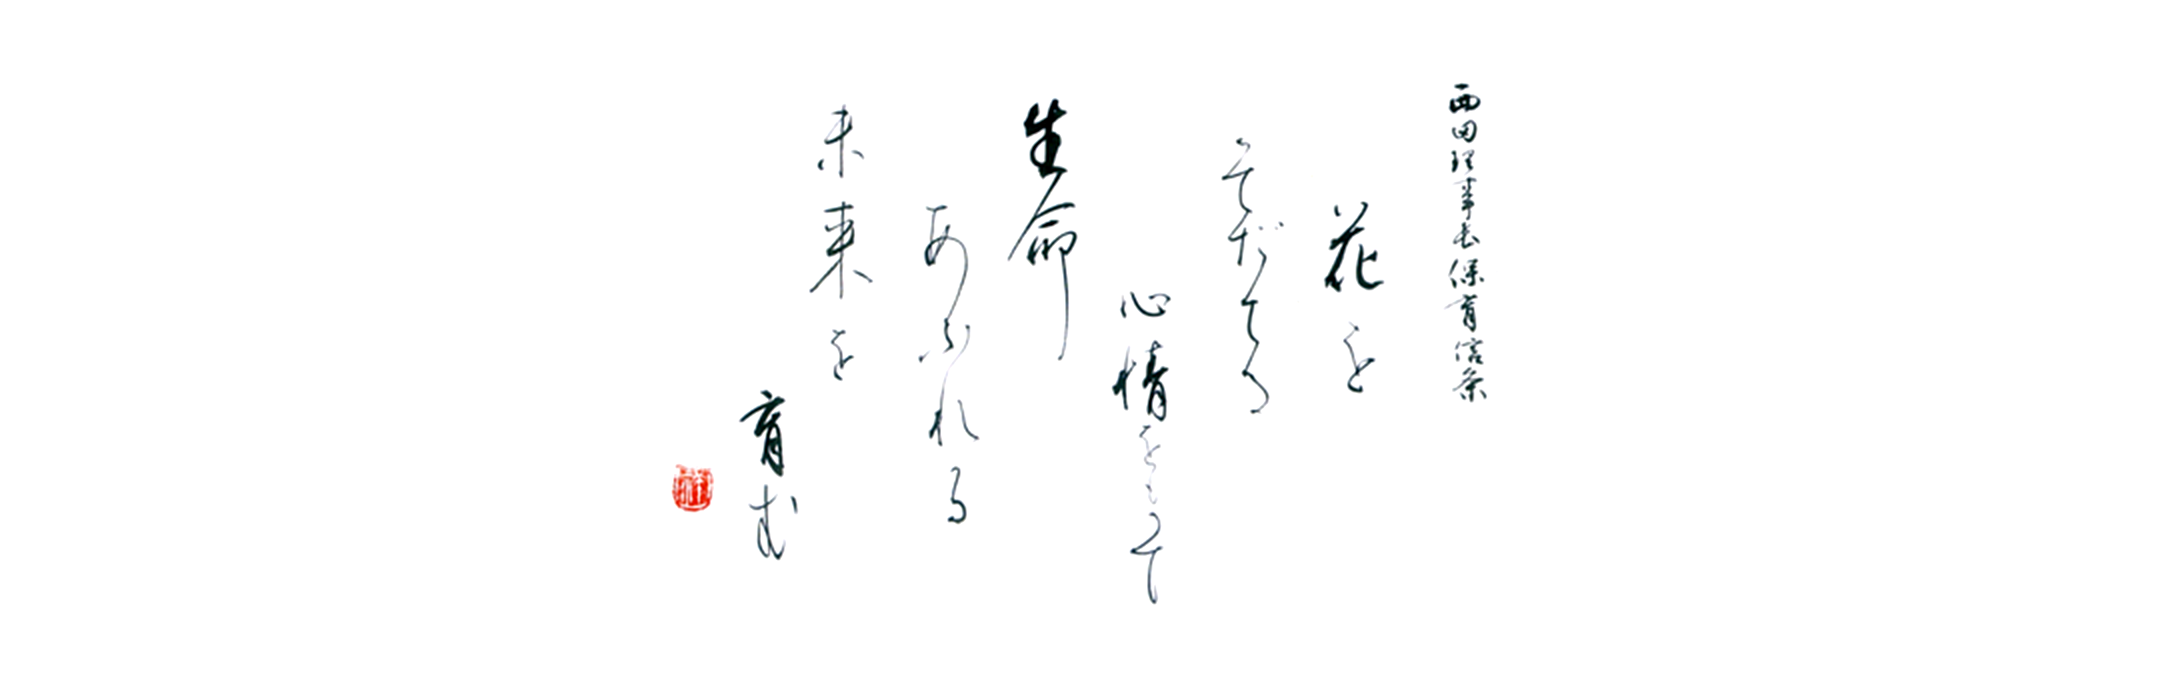 西田理事長保育信条
花を
そだてる
心情をもって
生命
あふれる
未来を
育む